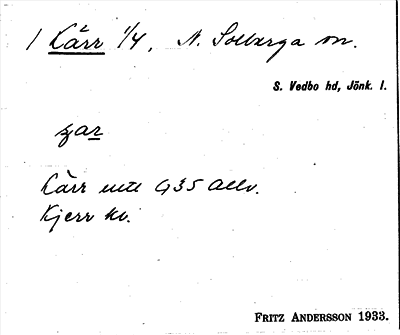 1 Kärr 1/4, N. Solberga sn.
S. Vedbo hd, Jönk. l.
ɟar
Kärr
Kjerr kv.
FRITZ ANDERSSON 1933.